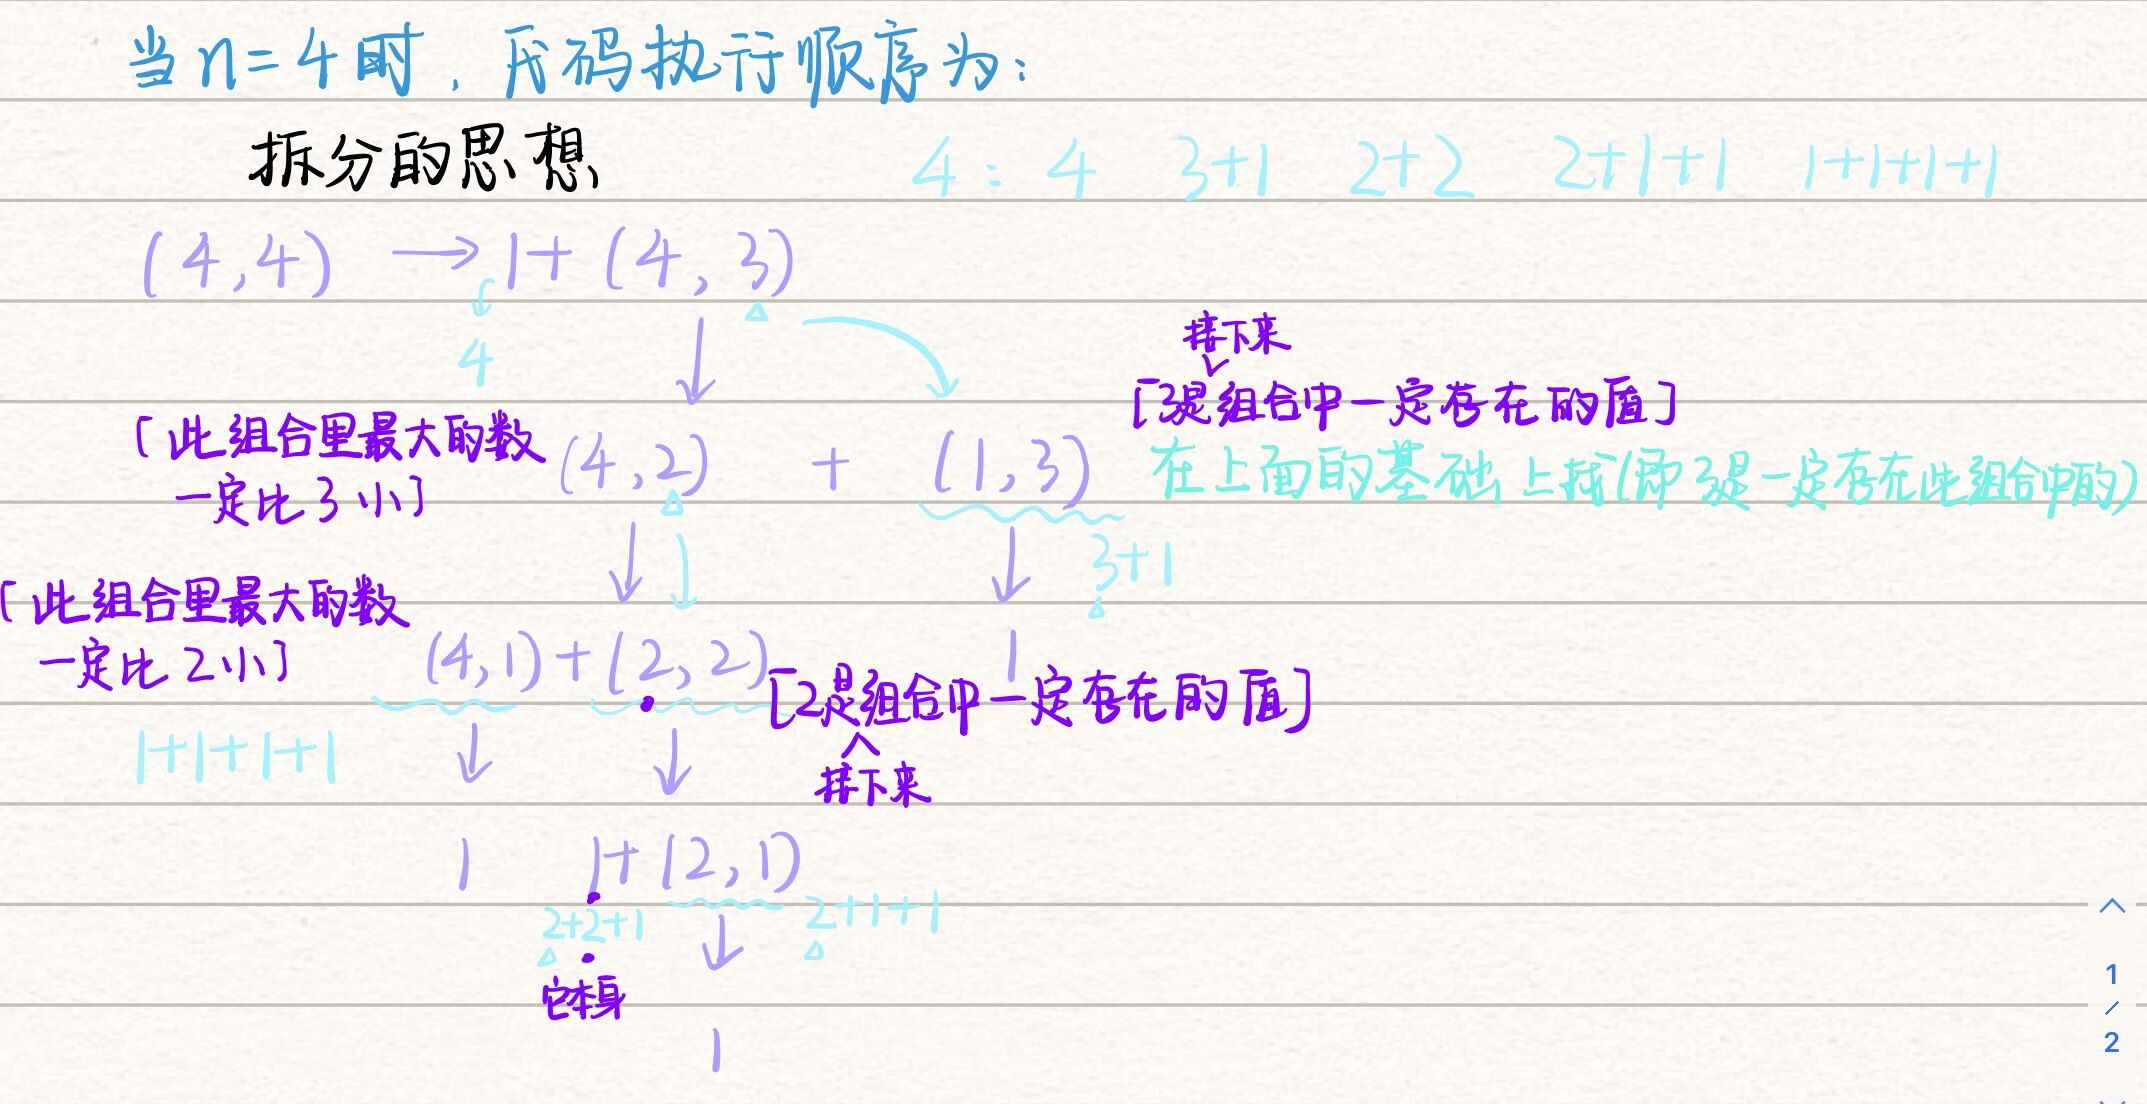 当n=4时，代码执行顺序为：
拆分的思想
4： 4 3+1 2+2 2+1+1 1+1+1+1
(4,4) → 1+ (4,3)
4
接下来
[3是组合中一定存在的值]
[此组合里最大的数
一定比3小]
(4,2) + (1,3)
在上面的基础上找(即3是一定存在此组合中的)
3+1
[此组合里最大的数
一定比2小]
(4,1)+(2,2)
1
[2是组合中一定存在的值]
接下来
1+1+1+1
1 1+(2,1)
2+2+1
2+1+1
它本身
1
1
/
2